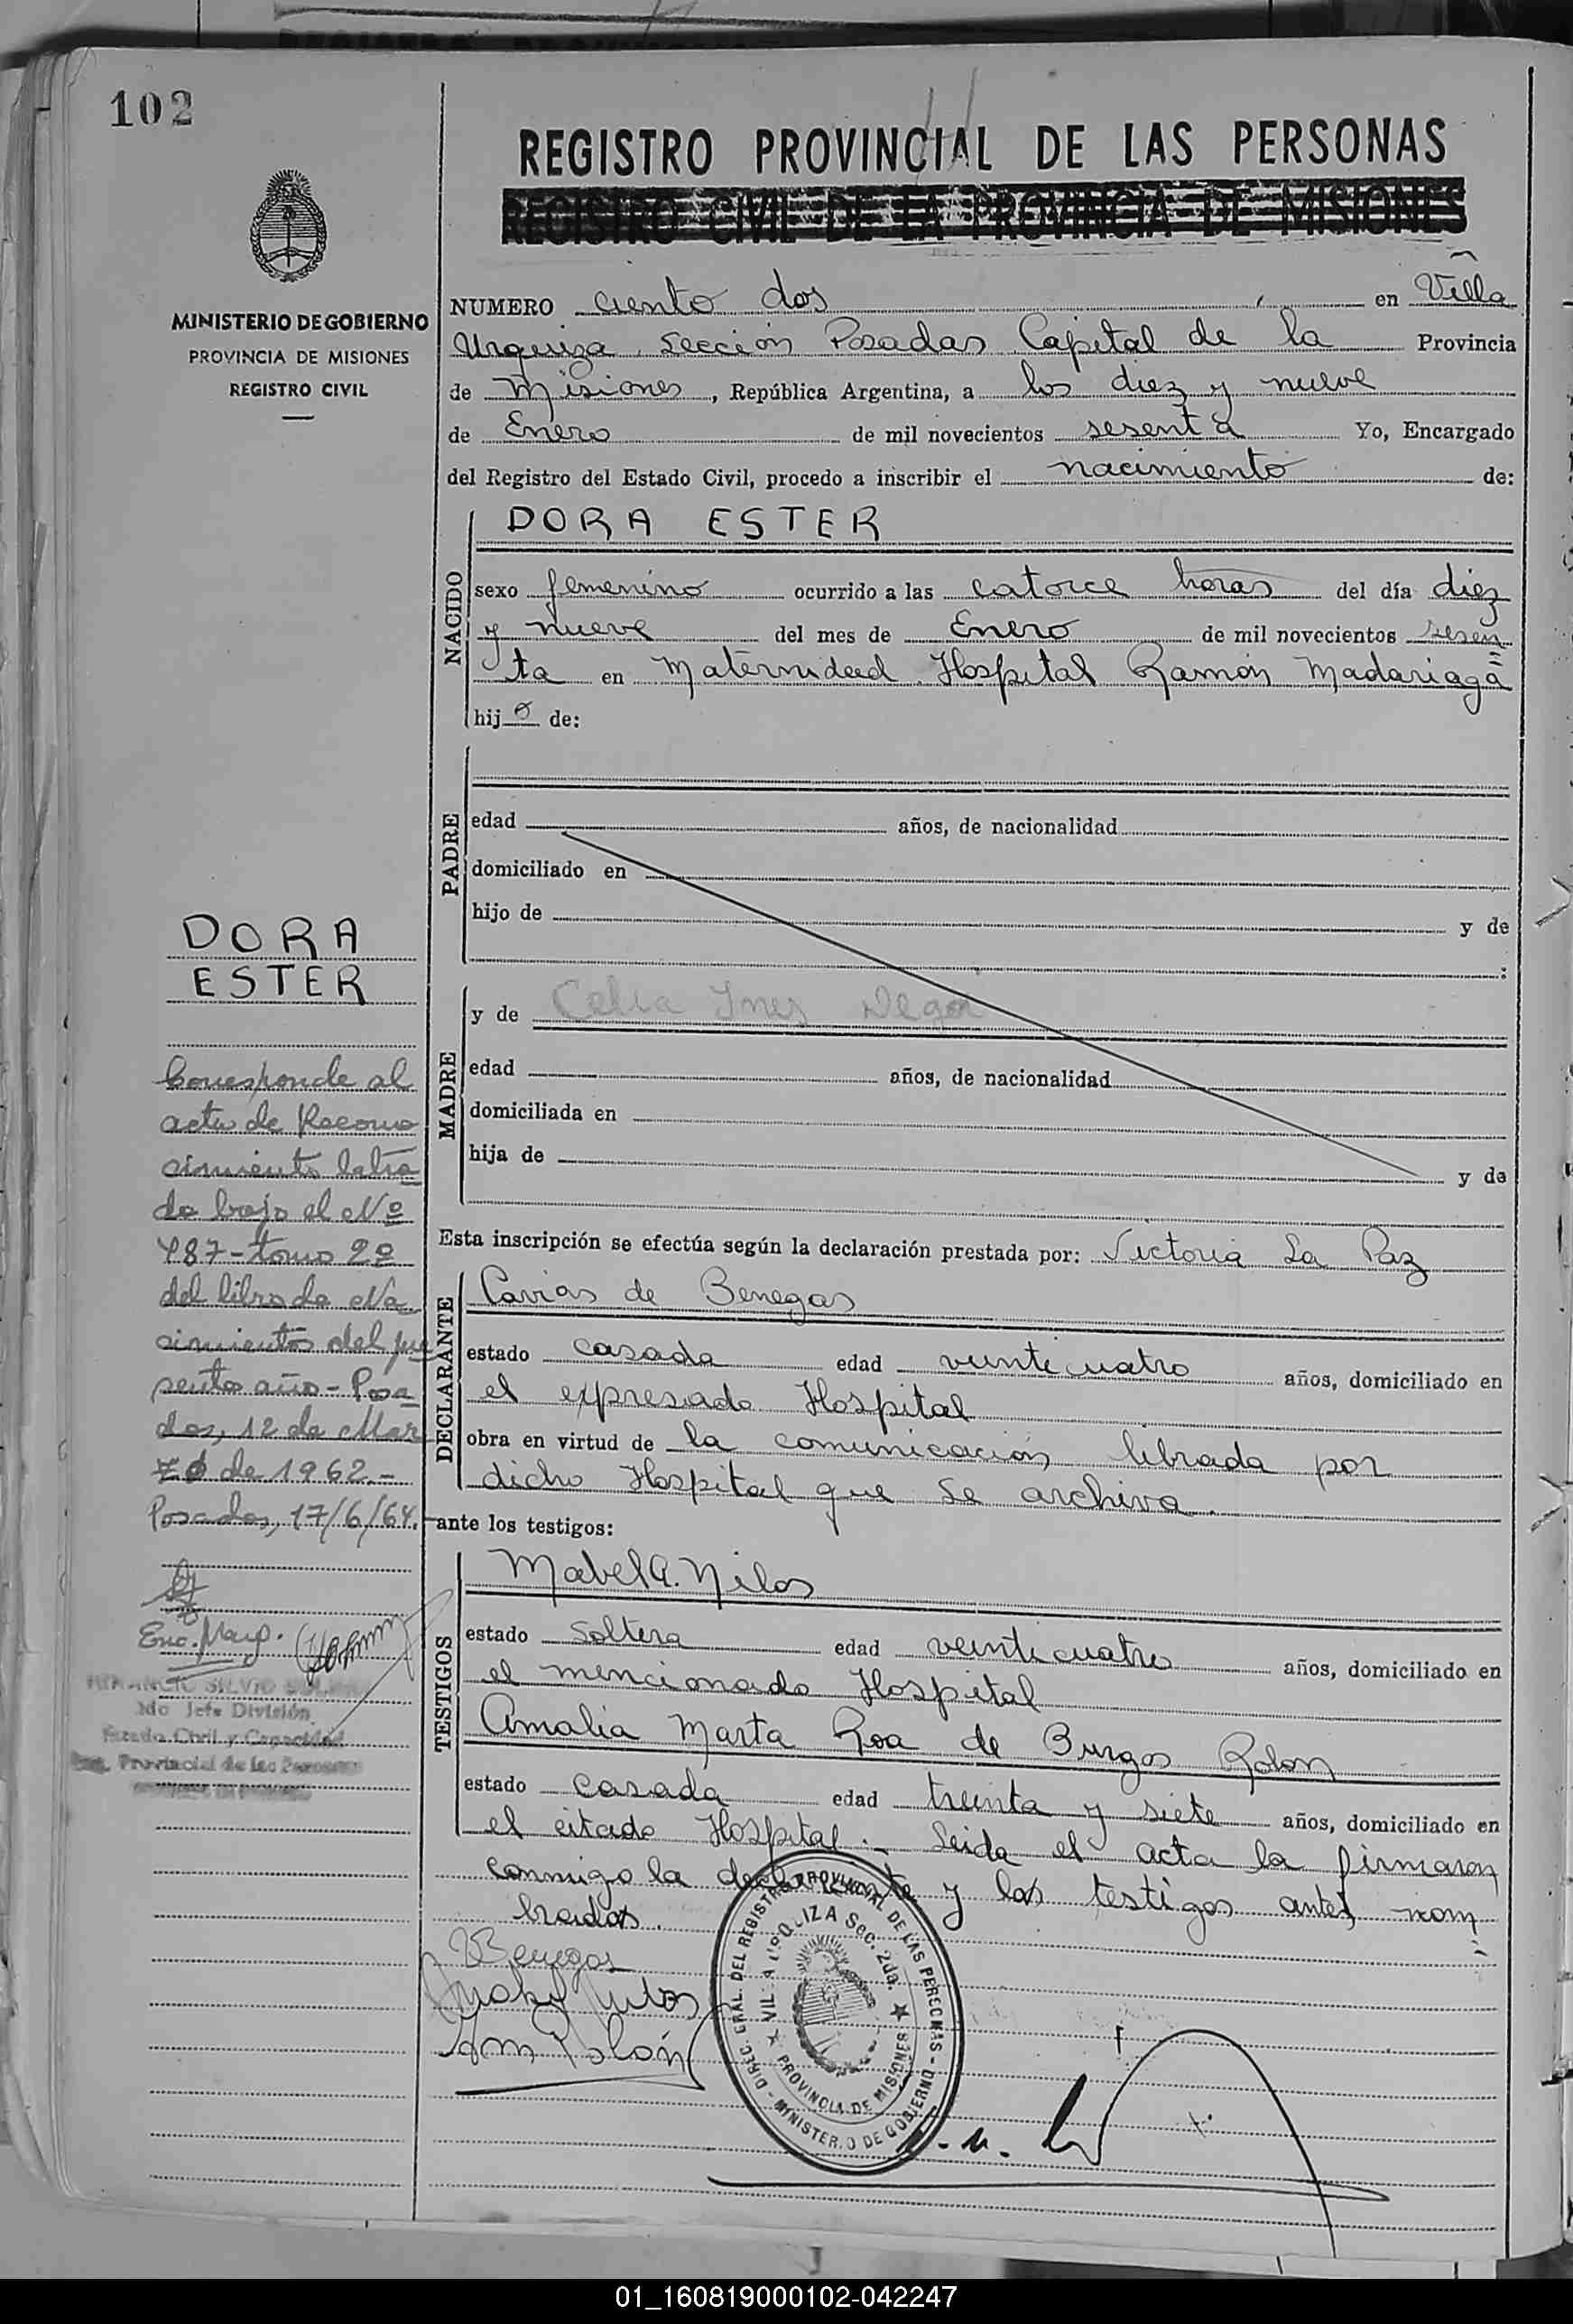 102
REGISTRO PROVINCIAL DE LAS PERSONAS
REGISTRO CIVIL DE LA PROVINCIA DE MISIONES
MINISTERIO DE GOBIERNO
PROVINCIA DE MISIONES
REGISTRO CIVIL
NUMERO ciento dos en Villa
Urquiza, Sección Posadas Capital de la Provincia
de Misiones, República Argentina, a los diez y nueve
de Enero de mil novecientos sesenta Yo, Encargado
del Registro del Estado Civil, procedo a inscribir el nacimiento de:
NACIDO
DORA ESTER
sexo femenino ocurrido a las catorce horas del día diez
y nueve del mes de Enero de mil novecientos sesen
ta en Maternidad Hospital Ramón Madariaga
hij de:
PADRE
edad años, de nacionalidad
domiciliado en
hijo de y de
:
MADRE
y de Celia Ines
edad años, de nacionalidad
domiciliada en
hija de y de
Esta inscripción se efectúa según la declaración prestada por: Victoria La Paz
DECLARANTE
Cavias de Benegas
estado casada edad veinticuatro años, domiciliado en
el expresado Hospital
obra en virtud de la comunicación librada por
dicho Hospital que se archiva.
ante los testigos:
TESTIGOS
Mabel A. Nilos
estado soltera edad veinticuatro años, domiciliado en
el mencionado Hospital
Amalia Marta Roa de Burgos Rolon
estado casada edad treinta y siete años, domiciliado en
el citado Hospital. Leida el acta la firmaron
conmigo la declarante y las testigos antes nom
bradas.
Benegas
Rolón
DIREC. GRAL. DEL REGISTRO PROVINCIAL DE LAS PERSONAS - MINISTERIO DE GOBIERNO -
VILLA URQUIZA Sec. 2da. ★ PROVINCIA DE MISIONES ★
DORA
ESTER
Corresponde al
acta de Recono
cimiento labra
da bajo el Nº
487 - tomo 2º
del libro de Na
cimientos del pre
sente año - Posa
das, 12 de Mar
zo de 1962.-
Posadas, 17/6/64.
Enc.
SILVIO
2do Jefe División
Estado Civil y Capacidad
Reg. Provincial de las Personas
01_160819000102-042247